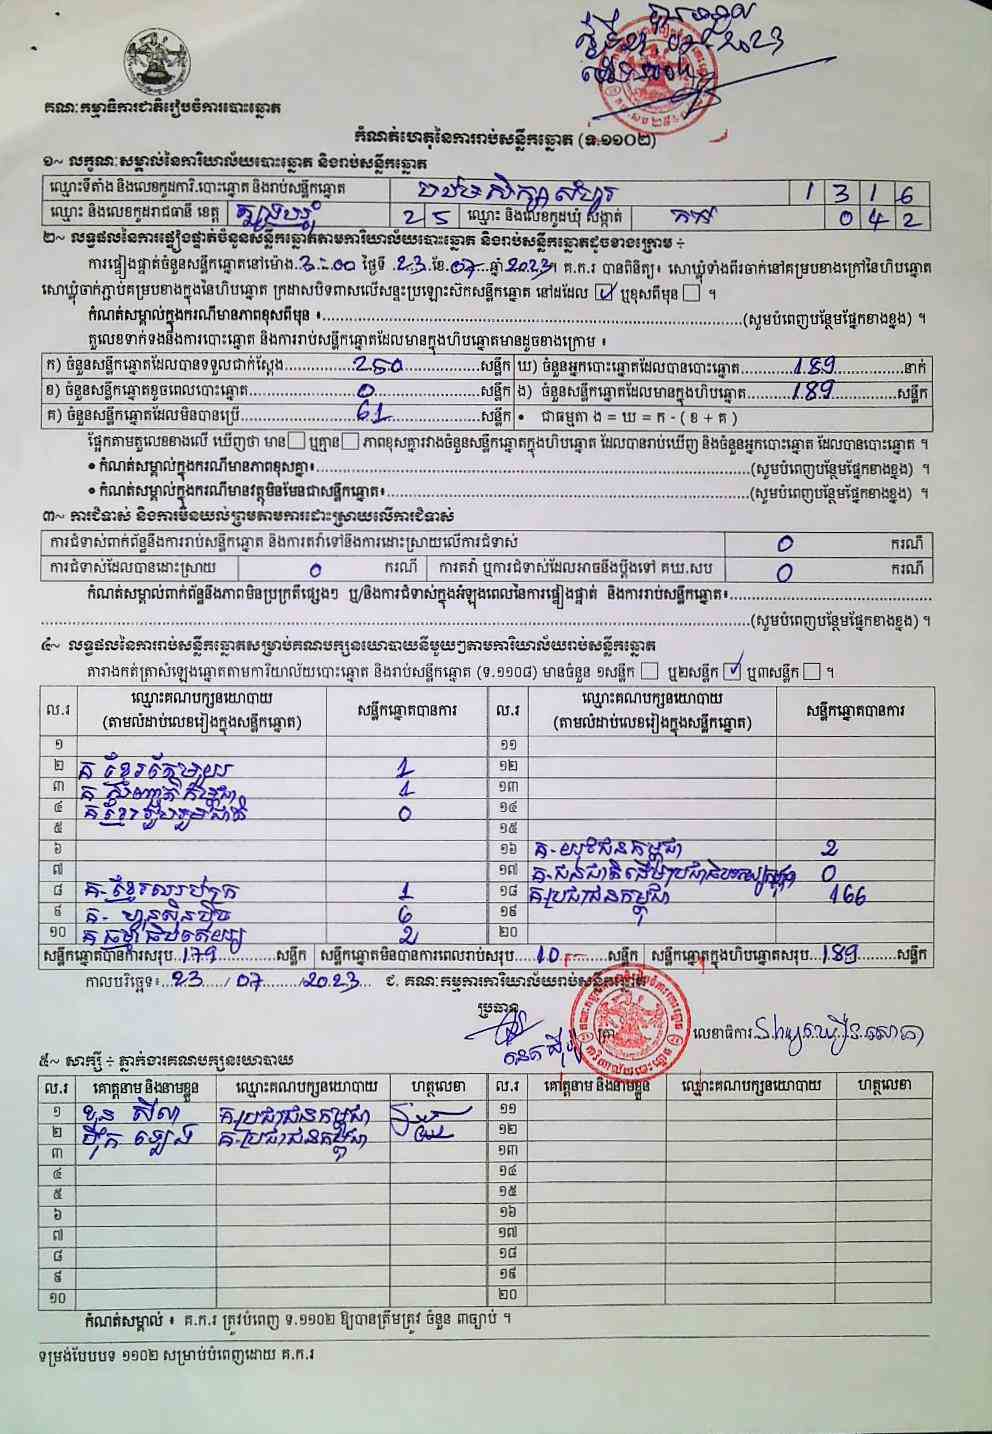 គណៈកម្មាធិការជាតិរៀបចំការបោះឆ្នោត
កំណត់ហេតុនៃការរាប់សន្លឹកឆ្នោត (ទ.១១០២)
១~ លក្ខណៈសម្គាល់នៃការិយាល័យបោះឆ្នោត និងរាប់សន្លឹកឆ្នោត
ឈ្មោះទីតាំង និងលេខកូដការិ.បោះឆ្នោត និងរាប់សន្លឹកឆ្នោត 1 3 1 6
ឈ្មោះ និងលេខកូដរាជធានី ខេត្ត ត្បូងឃ្មុំ 2 5 ឈ្មោះ និងលេខកូដឃុំ សង្កាត់ គគរ 0 4 2
២~ លទ្ធផលនៃការផ្ទៀងផ្ទាត់ចំនួនសន្លឹកឆ្នោតតាមការិយាល័យបោះឆ្នោត និងរាប់សន្លឹកឆ្នោតដូចខាងក្រោម ÷
ការផ្ទៀងផ្ទាត់ចំនួនសន្លឹកឆ្នោតនៅម៉ោង.3:00 ថ្ងៃទី 23 ខែ 07 ឆ្នាំ 2023 ។ គ.ក.រ បានពិនិត្យ៖ សោឃ្លុំទាំងពីរចាក់នៅគម្របខាងក្រៅនៃហិបឆ្នោត
សោឃ្លុំចាក់ភ្ជាប់គម្របខាងក្នុងនៃហិបឆ្នោត ក្រដាសបិទពាសលើសន្ទះប្រឡោះស៊កសន្លឹកឆ្នោត នៅដដែល ☑ ឬខុសពីមុន ☐ ។
កំណត់សម្គាល់ក្នុងករណីមានភាពខុសពីមុន ៖ (សូមបំពេញបន្ថែមផ្នែកខាងខ្នង) ។
តួលេខទាក់ទងនឹងការបោះឆ្នោត និងការរាប់សន្លឹកឆ្នោតដែលមានក្នុងហិបឆ្នោតមានដូចខាងក្រោម ៖
ក) ចំនួនសន្លឹកឆ្នោតដែលបានទទួលជាក់ស្តែង 250 សន្លឹក ឃ) ចំនួនអ្នកបោះឆ្នោតដែលបានបោះឆ្នោត 189 នាក់
ខ) ចំនួនសន្លឹកឆ្នោតខូចពេលបោះឆ្នោត 0 សន្លឹក ង) ចំនួនសន្លឹកឆ្នោតដែលមានក្នុងហិបឆ្នោត 189 សន្លឹក
គ) ចំនួនសន្លឹកឆ្នោតដែលមិនបានប្រើ 61 សន្លឹក • ជាធម្មតា ង = ឃ = ក - ( ខ + គ )
ផ្អែកតាមតួលេខខាងលើ ឃើញថា មាន ☐ ឬគ្មាន ☐ ភាពខុសគ្នារវាងចំនួនសន្លឹកឆ្នោតក្នុងហិបឆ្នោត ដែលបានរាប់ឃើញ និងចំនួនអ្នកបោះឆ្នោត ដែលបានបោះឆ្នោត ។
• កំណត់សម្គាល់ក្នុងករណីមានភាពខុសគ្នា៖ (សូមបំពេញបន្ថែមផ្នែកខាងខ្នង) ។
• កំណត់សម្គាល់ក្នុងករណីមានវត្ថុមិនមែនជាសន្លឹកឆ្នោត៖ (សូមបំពេញបន្ថែមផ្នែកខាងខ្នង) ។
៣~ ការជំទាស់ និងការមិនយល់ព្រមតាមការដោះស្រាយលើការជំទាស់
ការជំទាស់ពាក់ព័ន្ធនឹងការរាប់សន្លឹកឆ្នោត និងការតវ៉ាទៅនឹងការដោះស្រាយលើការជំទាស់ 0 ករណី
ការជំទាស់ដែលបានដោះស្រាយ 0 ករណី ការតវ៉ា ឬការជំទាស់ដែលអាចនឹងប្តឹងទៅ គឃ.សប 0 ករណី
កំណត់សម្គាល់ពាក់ព័ន្ធនឹងភាពមិនប្រក្រតីផ្សេងៗ ឬ/និងការជំទាស់ក្នុងអំឡុងពេលនៃការផ្ទៀងផ្ទាត់ និងការរាប់សន្លឹកឆ្នោត៖
(សូមបំពេញបន្ថែមផ្នែកខាងខ្នង) ។
៤~ លទ្ធផលនៃការរាប់សន្លឹកឆ្នោតសម្រាប់គណបក្សនយោបាយនីមួយៗតាមការិយាល័យរាប់សន្លឹកឆ្នោត
តារាងកត់ត្រាសំឡេងឆ្នោតតាមការិយាល័យបោះឆ្នោត និងរាប់សន្លឹកឆ្នោត (ទ.១១០៨) មានចំនួន ១សន្លឹក ☐ ឬ២សន្លឹក ☑ ឬ៣សន្លឹក ☐ ។
ល.រ ឈ្មោះគណបក្សនយោបាយ (តាមលំដាប់លេខរៀងក្នុងសន្លឹកឆ្នោត) សន្លឹកឆ្នោតបានការ ល.រ ឈ្មោះគណបក្សនយោបាយ (តាមលំដាប់លេខរៀងក្នុងសន្លឹកឆ្នោត) សន្លឹកឆ្នោតបានការ
១ ១១
២ គ ខ្មែរតែមួយ 1 ១២
៣ គ សញ្ជាតិកម្ពុជា 1 ១៣
៤ គ ខ្មែររួបរួមជាតិ 0 ១៤
៥ ១៥
៦ ១៦ គ-យុវជនកម្ពុជា 2
៧ ១៧ 0
៨ គ-ខ្មែរ 1 ១៨ គ-ប្រជាជនកម្ពុជា 166
៩ គ- ហ៊្វុនស៊ិនប៉ិច 6 ១៩
១០ គ ធម្មាធិបតេយ្យ 2 ២០
សន្លឹកឆ្នោតបានការសរុប 179 សន្លឹក សន្លឹកឆ្នោតមិនបានការពេលរាប់សរុប 10 សន្លឹក សន្លឹកឆ្នោតក្នុងហិបឆ្នោតសរុប 189 សន្លឹក
កាលបរិច្ឆេទ៖ 23 / 07 / 2023 ជ. គណៈកម្មការការិយាល័យរាប់សន្លឹកឆ្នោត
ប្រធាន
ត្រា លេខាធិការ
៥~ សាក្សី ÷ ភ្នាក់ងារគណបក្សនយោបាយ
ល.រ គោត្តនាម និងនាមខ្លួន ឈ្មោះគណបក្សនយោបាយ ហត្ថលេខា ល.រ គោត្តនាម និងនាមខ្លួន ឈ្មោះគណបក្សនយោបាយ ហត្ថលេខា
១ ឃុន ស៊ីណា គ-ប្រជាជនកម្ពុជា ១១
២ គ-ប្រជាជនកម្ពុជា ១២
៣ ១៣
៤ ១៤
៥ ១៥
៦ ១៦
៧ ១៧
៨ ១៨
៩ ១៩
១០ ២០
កំណត់សម្គាល់ ៖ គ.ក.រ ត្រូវបំពេញ ទ.១១០២ ឱ្យបានត្រឹមត្រូវ ចំនួន ៣ច្បាប់ ។
ទម្រង់បែបបទ ១១០២ សម្រាប់បំពេញដោយ គ.ក.រ